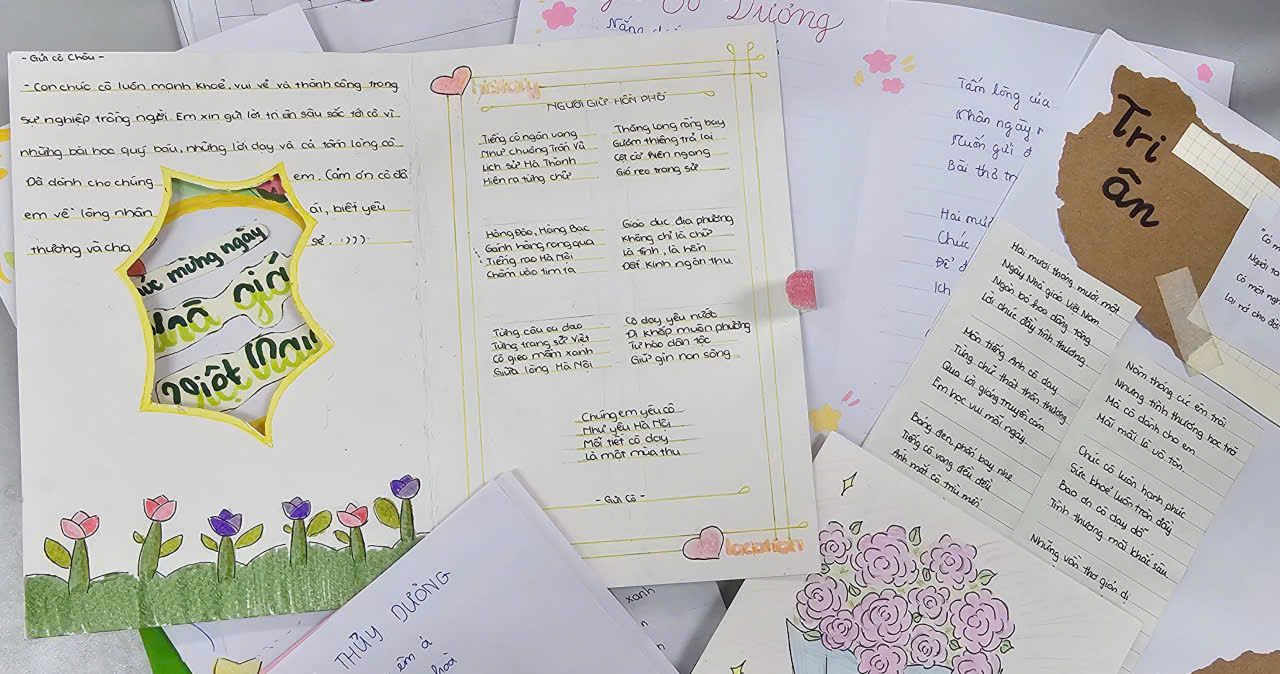 - Gửi cô Châu -
- Con chúc cô luôn mạnh khoẻ, vui vẻ và thành công trong
sự nghiệp trồng người. Em xin gửi lời tri ân sâu sắc tới cô vì
những bài học quý báu, những lời dạy và cả tấm lòng cô
Đã dành cho chúng em. Cảm ơn cô đã
em về lòng nhân ái, biết yêu
thương và chia sẻ. :)))
mừng ngày
Việt Nam
history
NGƯỜI GIỮ HỒN PHỐ
Tiếng cô ngân vang
Như chuông Trấn Vũ
Lịch sử Hà Thành
Hiện ra từng chữ
Thăng Long rồng bay
Gươm thiêng trả lại
Cột cờ hiên ngang
Gió reo trang sử
Hàng Đào, Hàng Bạc
Gánh hàng rong qua
Tiếng rao Hà Nội
Chạm vào tim ta
Giáo dục địa phương
Không chỉ là chữ
Là tình, là hồn
Đất Kinh ngàn thu
Từng câu ca dao
Từng trang sử Việt
Cô gieo mầm xanh
Giữa lòng Hà Nội
Cô dạy yêu nước
Đi khắp muôn phương
Tự hào dân tộc
Giữ gìn non sông
Chúng em yêu cô
Như yêu Hà Nội
Mỗi tiết cô dạy
Là một mùa thu
- Gửi Cô -
location
THÙY DƯƠNG
êm ả
hoà
xanh
Dương
Nắng
Tấm lòng của
Nhân ngày
Muốn gửi
Bài thơ
Hai mươi
Chúc
Để
Ích
Tri
ân
Hai mươi tháng mười một
Ngày Nhà giáo Việt Nam
Ngàn bó hoa dâng tặng
Lời chúc đầy tình thương
Môn tiếng Anh cô dạy
Từng chữ thật thân thương
Qua lời giảng truyền cảm
Em học vui mỗi ngày.
Bảng đen, phấn bay nhẹ
Tiếng cô vang đều đều
Ánh mắt cô trìu mến
Năm tháng cứ êm trôi
Nhưng tình thương học trò
Mà cô dành cho em
Mãi mãi là vô tận
Chúc cô luôn hạnh phúc
Sức khoẻ luôn tràn đầy
Bao ơn cô dạy dỗ
Tình thương mãi khắc sâu
Những vần thơ giản dị
"Có
Người
Có một